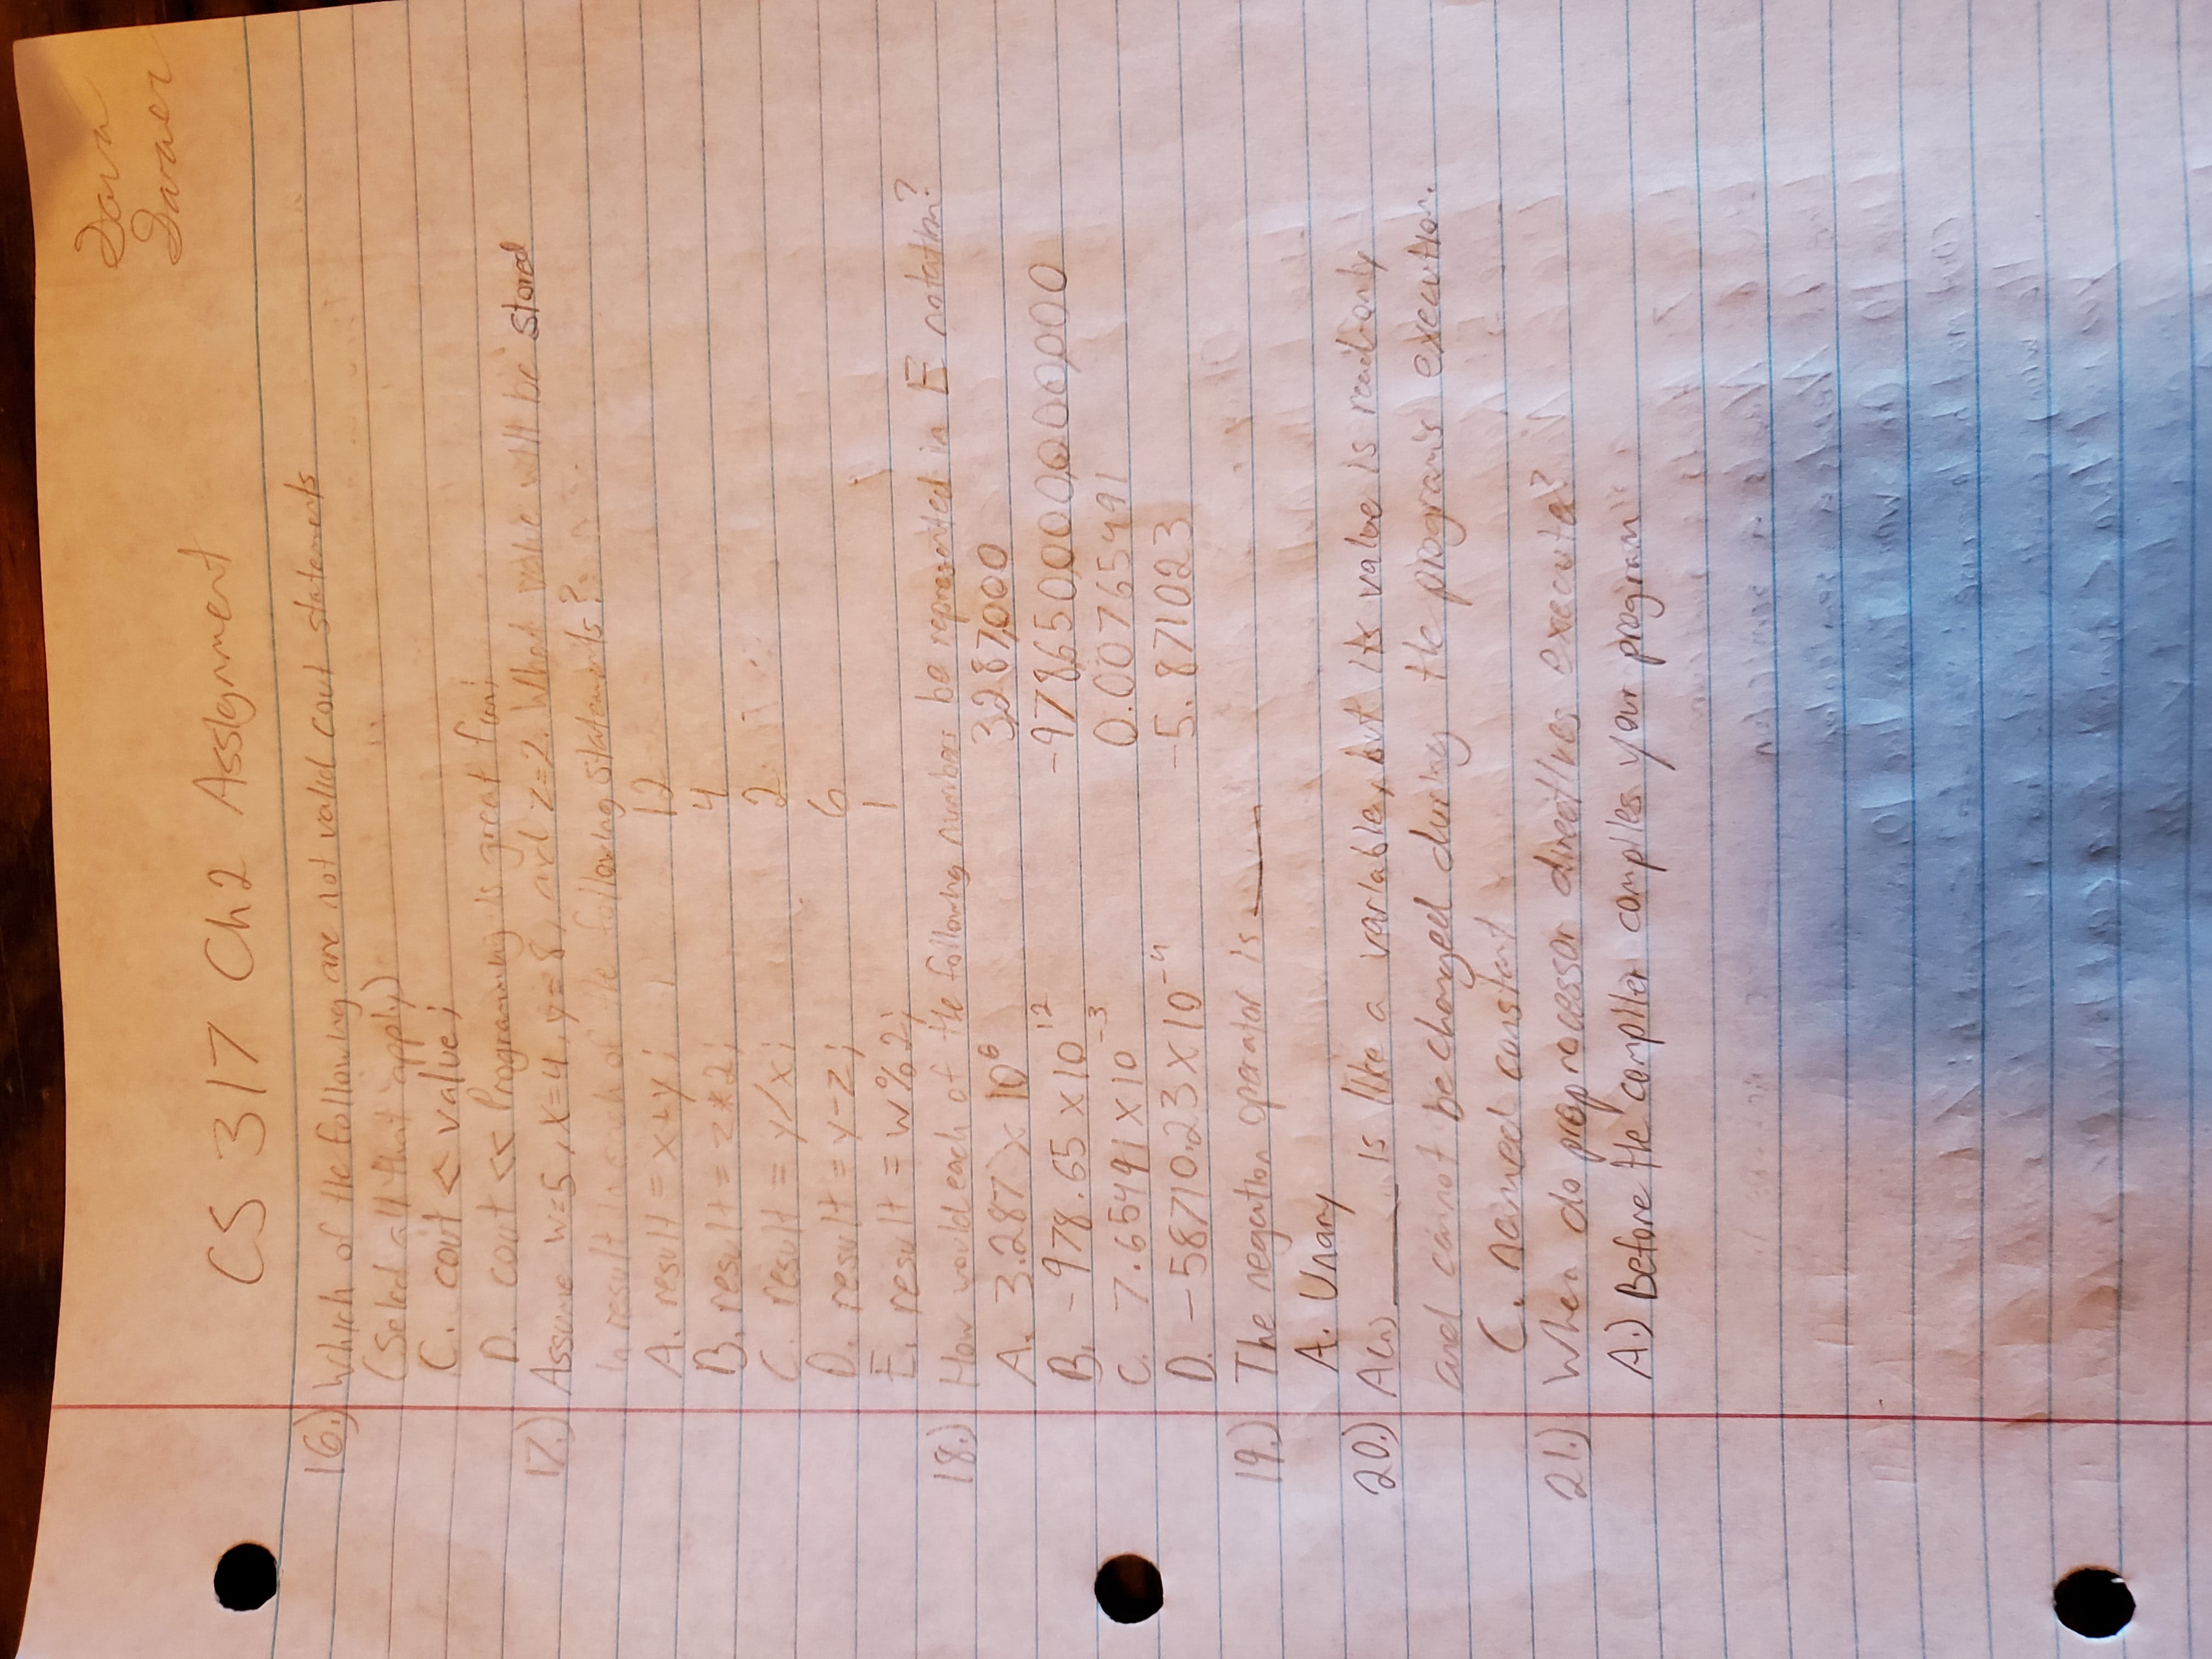 CS 317 Ch2 Assignment
16.) Which of the following are not valid cout statements
(Select all that apply)
C. cout < value;
D. cout << Programming is great fun;
17.) Assume w=5, x=4, y=8, and z=2. What value will be stored
in result in each of the following statements?
A. result = x+y; 12
B. result = z*2; 4
C. result = y/x; 2
D. result = y-z; 6
E. result = w%2; 1
18.) How would each of the following numbers be represented in E notation?
A. 3.287 × 10⁶ 3,287,000
B. -978.65 × 10¹² -978,650,000,000,000
C. 7.65491 × 10⁻³ 0.00765491
D. -58710.23 × 10⁻⁴ -5.871023
19.) The negation operator is ____
A. Unary
20.) A(n) ____ is like a variable, but its value is read-only
and cannot be changed during the program's execution.
C. named constant
21.) When do preprocessor directives execute?
A.) Before the compiler compiles your program